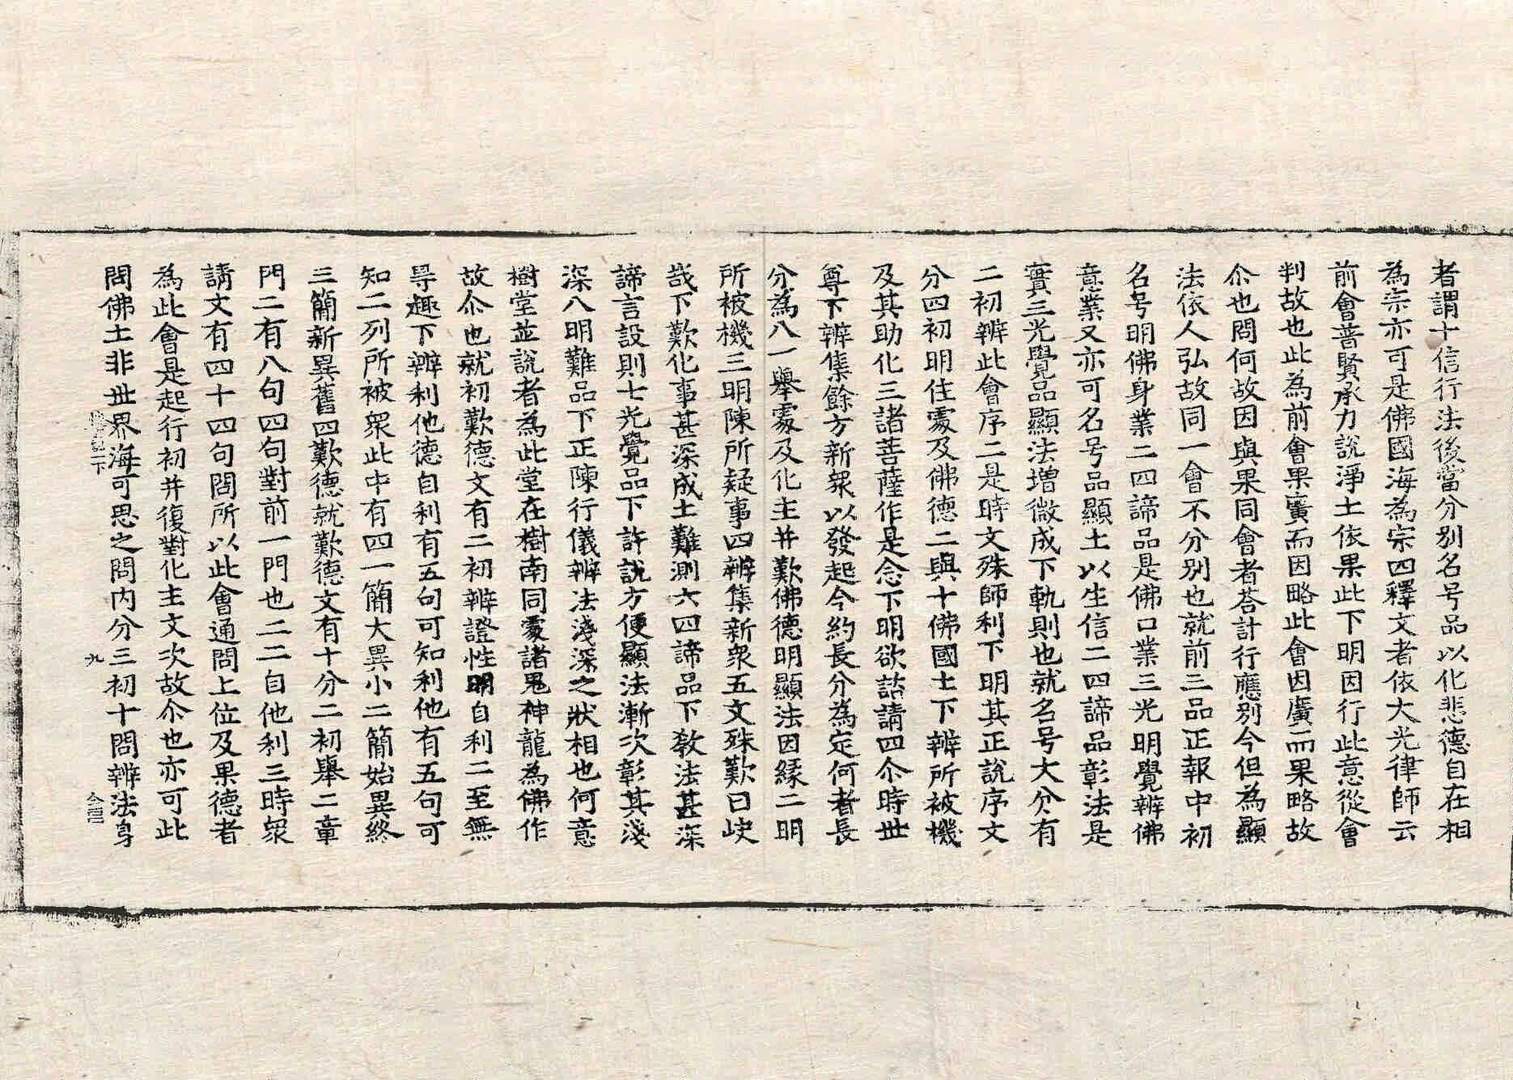 者謂十信行法後當分別名号品以化悲德自在相
為宗亦可是佛國海為宗四釋文者依大光律師云
前會普賢承力說淨土依果此下明因行此意從會
判故也此為前會果廣而因略此會因廣而果略故
尒也問何故因與果同會者荅計行應別今但為顯
法依人弘故同一會不分別也就前三品正報中初
名号明佛身業二四諦品是佛口業三光明覺辨佛
意業又亦可名号品顯土以生信二四諦品彰法是
實三光覺品顯法增微成下軌則也就名号大分有
二初辨此會序二是時文殊師利下明其正說序文
分四初明住處及佛德二與十佛國土下辨所被機
及其助化三諸菩薩作是念下明欲詁請四尒時世
尊下辨集餘方新衆以發起今約長分為定何者長
分為八一舉處及化主并歎佛德明顯法因緣二明
所被機三明陳所疑事四辨集新衆五文殊歎曰快
哉下歎化事甚深成土難測六四諦品下教法甚深
諦言設則七光覺品下許說方便顯法漸次彰其淺
深八明難品下正陳行儀辨法淺深之狀相也何意
樹堂並說者為此堂在樹南同處諸鬼神龍為佛作
故尒也就初歎德文有二初辨證性明自利二至無
㝵趣下辨利他德自利有五句可知利他有五句可
知二列所被衆此中有四一簡大異小二簡始異終
三簡新異舊四歎德就歎德文有十分二初舉二章
門二有八句四句對前一門也二二自他利三時衆
請文有四十四句問所以此會通問上位及果德者
為此會是起行初并復對化主文次故尒也亦可此
問佛土非世界海可思之問內分三初十問辨法身
九